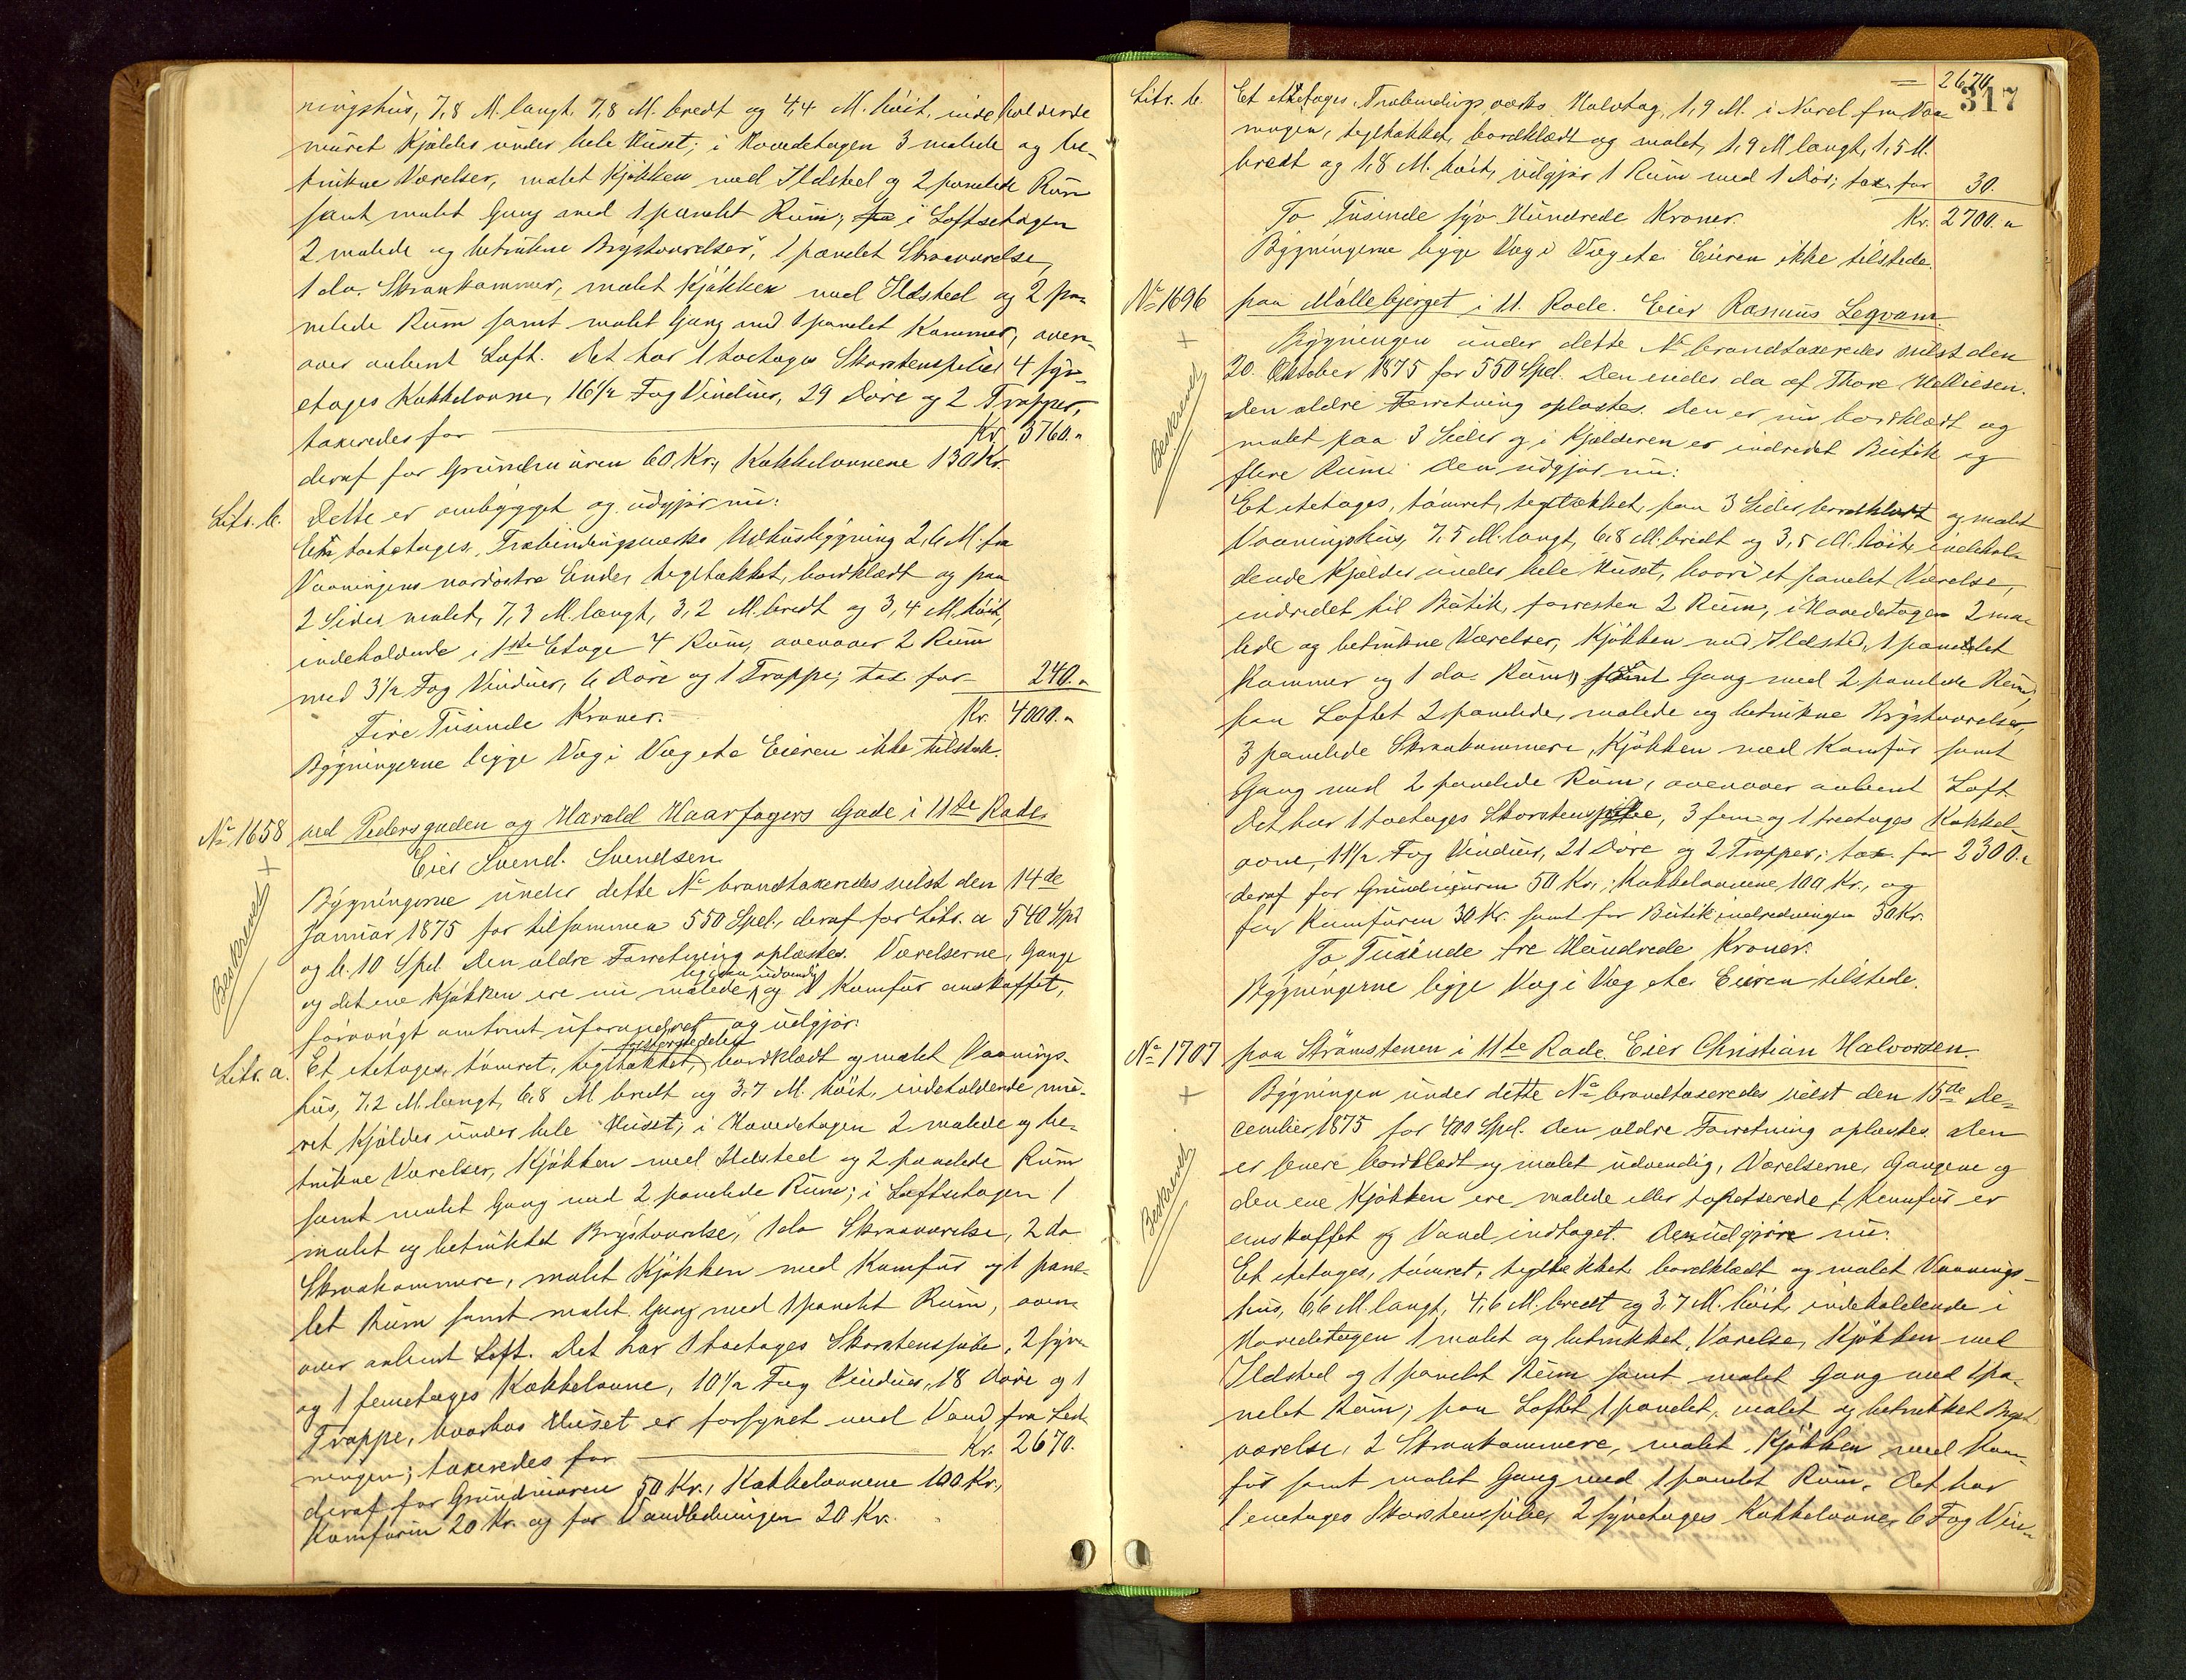 ningshus, 7,8 M. langt, 7,8 M. bredt og 4,4 M. höit, indeholdende
muret Kjælder under hele Huset; i Hovedetagen 3 malede og be-
trukne Værelser, malet Kjøkken med Ildsted og 2 panelede Rum
samt malet Gang med 1 panelet Rum; i Loftsetagen
2 malede og betrukne Brystværelser, 1 panelet Skraaværelse,
1 do. Skraakammer, malet Kjøkken med Ildsted og 2 pa-
nelede Rum samt malet Gang med 1 panelet Kammer, oven-
over aabent Loft. Det har 1 toetages Skorstenspibe, 4 syv-
etages Kakkelovne, 16 1/2 Fag Vinduer, 29 Döre og 2 Trapper,
taxeredes for Kr. 3760.
deraf for Grundmuren 60 Kr., Kakkelovnene 130 Kr.
Litr. b. Dette er ombygget og udgjör nu:
En toetages, Træbindingsværks Udhusbygning 2,6 M. fra
Vaaningens nordöstre Ende, tegltækket, bordklædt og paa
2 Sider malet, 7,3 M. langt, 3,2 M. bredt og 3,4 M. höit,
indeholdende i 1ste Etage 4 Rum, ovenover 2 Rum
med 3 1/2 Fag Vinduer, 6 Döre og 1 Trappe; tax. for 240.
Fire Tusinde Kroner. Kr. 4000.
Bygningerne ligge Væg i Væg etc. Eieren ikke tilstede.
No 1658 ved Pedersgaden og Harald Haarfagers Gade i 11te Rode.
Eier Svend Svendsen.
Bygningerne under dette No brandtaxeredes sidst den 14de
Januar 1875 for tilsammen 550 Spd., deraf for Litr. a 540 Spd
og b. 10 Spd. Den ældre Forretning oplæstes. Værelserne, Gange
ligesaa udvendig
og det ene Kjøkken ere nu malede, og 1 Komfur anskaffet,
forövrigt omtrent uforandret og udgjör:
Beskrevet
Litr. a. Et etetages, tömret, tegltækket, bordklædt og malet Vaanings-
hus, 7,2 M. langt, 6,8 M. bredt og 3,7 M. höit, indeholdende mu-
ret Kjælder under hele Huset; i Hovedetagen 2 malede og be-
trukne Værelser, Kjøkken med Ildsted og 2 panelede Rum
samt malet Gang med 2 panelede Rum; i Loftsetagen 1
malet og betrukket Brystværelse, 1 do Skraaværelse, 2 do
Skraakammere, malet Kjøkken med Komfur og 1 pane-
let Rum samt malet Gang med 1 panelet Rum, oven-
over aabent Loft. Det har 1 toetages Skorstenspibe, 2 syv-
og 1 femetages Kakkelovne, 10 1/2 Fag Vinduer, 18 Döre og 1
Trappe, hvorhos Huset er forsynet med Vand fra Led-
ningen; taxeredes for Kr. 2670.
deraf for Grundmuren 50 Kr., Kakkelovnene 100 Kr.,
Komfuren 20 Kr. og for Vandledningen 20 Kr.
317
2670
Litr. b. Et etetages, Træbindingsværks Halvtag, 1,9 M. i Nord fra Vaa-
ningen, tegltækket, bordklædt og malet, 1,9 M langt, 1,5 M.
bredt og 1,8 M. höit, udgjör 1 Rum med 1 Dör; tax. for 30.
To Tusinde syv Hundrede Kroner. Kr. 2700.
Bygningerne ligge Væg i Væg etc. Eieren ikke tilstede.
No 1696 paa Möllebjerget i 11. Rode. Eier Rasmus Legvam.
Bygningen under dette No brandtaxeredes sidst den
20. Oktober 1875 for 550 Spd. Den eiedes da af Thore
Den ældre Forretning oplæstes. Den er nu bordklædt og
malet paa 3 Sider og i Kjælderen er indredet Butik og
flere Rum. Den udgjör nu:
Beskrevet
Et etetages, tömret, tegltækket, paa 3 Sider bordklædt og malet
Vaaningshus, 7,5 M. langt, 6,8 M. bredt og 3,5 M. höit, indehol-
dende Kjælder under hele Huset, hvori et panelet Værelse,
indredet til Butik, forresten 2 Rum, i Hovedetagen 2 ma-
lede og betrukne Værelser, Kjøkken med Ildsted, 1 panelet
Kammer og 1 do. Rum, samt Gang med 2 panelede Rum,
paa Loftet 2 panelede, malede og betrukne Brystværelser,
3 panelede Skraakammere, Kjøkken med Komfur samt
Gang med 2 panelede Rum, ovenover aabent Loft.
Det har 1 toetages Skorstenspibe, 3 fem- og 1 treetages Kakkel-
ovne, 11 1/2 Fag Vinduer, 21 Döre og 2 Trapper; tax. for 2300.
deraf for Grundmuren 50 Kr., Kakkelovnene 100 Kr., og
for Komfuren 30 Kr. samt for Butikindredningen 30 Kr.
To Tusinde tre Hundrede Kroner.
Bygningerne ligge Væg i Væg etc. Eieren tilstede.
No 1707 paa Strömstenen i 11te Rode. Eier Christian Halvorsen.
Bygningen under dette No brandtaxeredes sidst den 15de De-
cember 1875 for 400 Spd. Den ældre Forretning oplæstes. Den
er senere bordklædt og malet udvendig, Værelserne, Gangene og
den ene Kjøkken ere malede eller tapetserede, 1 Komfur er
anskaffet og Vand indtaget. Den udgjör nu:
Beskrevet
Et etetages, tömret, tegltækket, bordklædt og malet Vaanings-
hus, 6,6 M. langt, 4,6 M. bredt og 3,7 M. höit, indeholdende i
Hovedetagen 1 malet og betrukket Værelse, Kjøkken med
Ildsted og 1 panelet Rum samt malet Gang med 1 pa-
nelet Rum; paa Loftet 1 panelet, malet og betrukket Bryst-
værelse, 2 Skraakammere, malet Kjøkken med Kom-
fur samt malet Gang med 1 panelet Rum. Det har
1 enetages Skorstenspibe, 2 syvetages Kakkelovne, 6 Fag Vin-